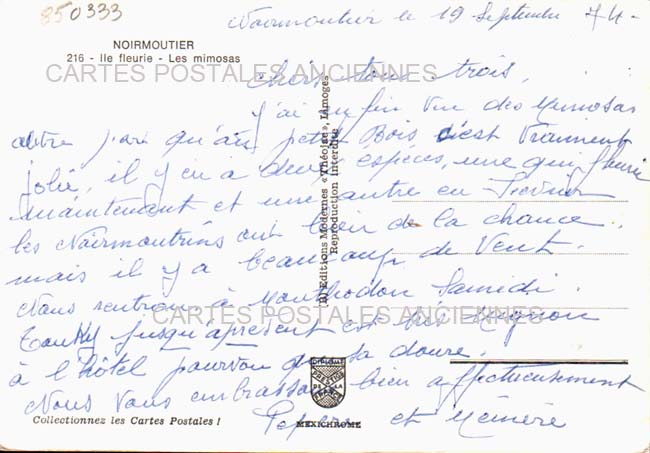 850333
Noirmoutier le 19 Septembre 74-
NOIRMOUTIER
216 - Ile fleurie - Les mimosas
CARTES POSTALES ANCIENNES
chers tous trois,
j'ai enfin vue des Mimosas
autre part qu'au petit Bois c'est vraiment
jolie, il y en a deux espèces, une qui fleurie
maintenant et une autre en Fevrier
les Noirmoutrins ont bien de la chance.
mais il y a beaucoup de Vent.
Nous rentrons à Monthodon Samedi.
CARTES POSTALES ANCIENNES
jusqu'apresent est très mignon
à l'hôtel pourvou que sa doure.
Nous Vous embrassons bien affectueusement
Pepère et Mémère
(R) Editions Modernes «Théojac», Limoges
Reproduction Interdite
Collectionnez les Cartes Postales !
MEXICHROME